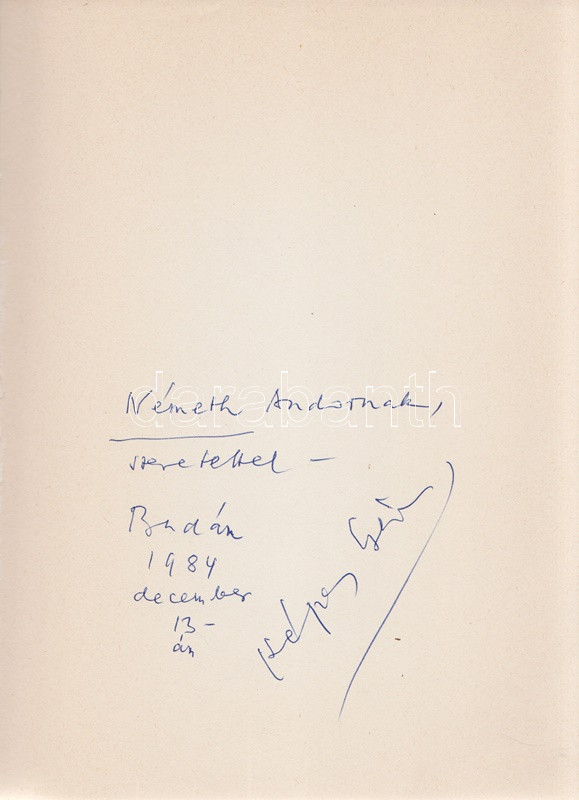 Németh Andornak,
szeretettel –
Budán
1984
december
13-
án
Képes Géza
darabanth